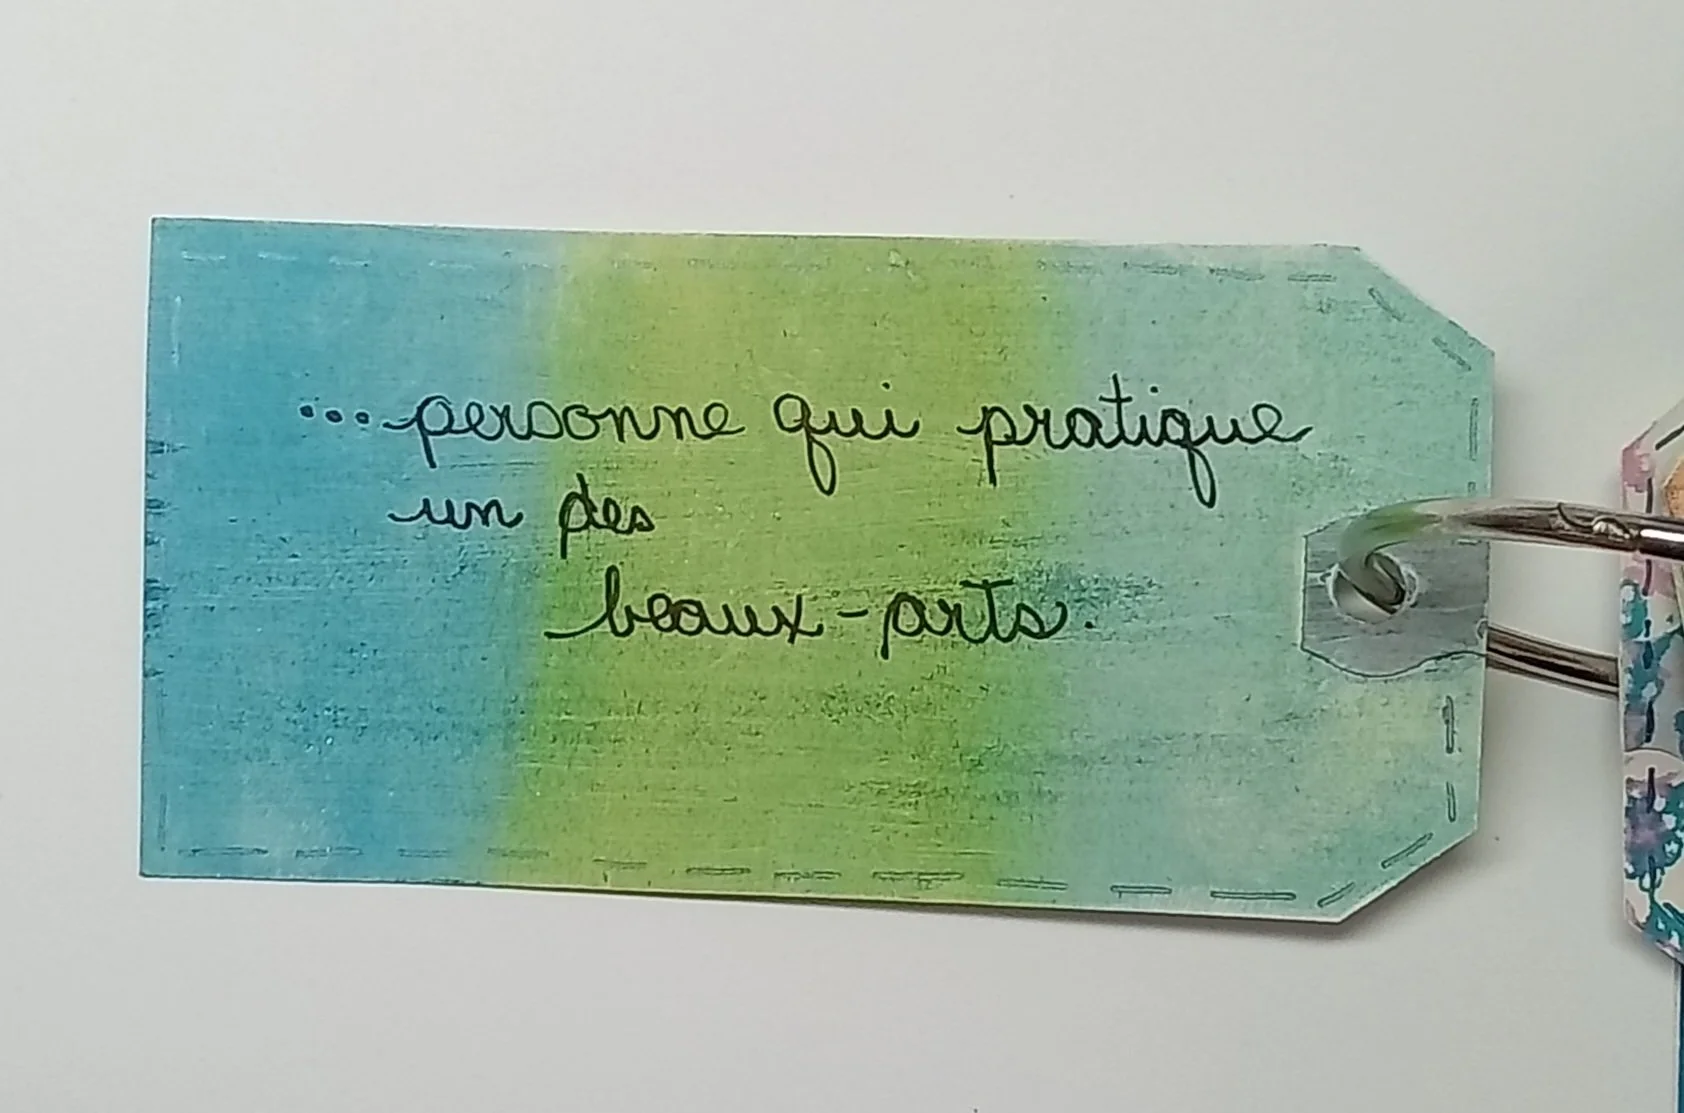 ...personne qui pratique
un des
beaux-arts.